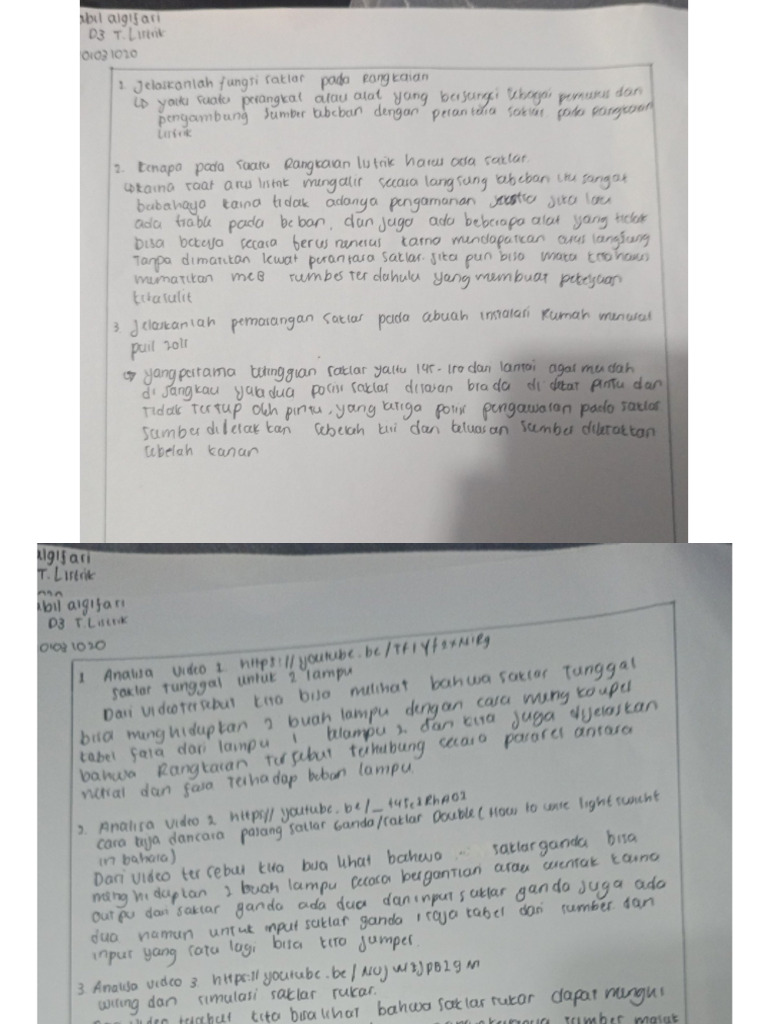 abil algifari
D3 T. Listrik
01031020
1. Jelaskanlah fungsi saklar pada Rangkaian
yaitu suatu perangkat atau alat yang berfungsi sebagai pemutus dan
pengambung sumber kebeban dengan perantara saklar pada Rangkaian
Listrik
2. Kenapa pada suatu Rangkaian listrik harus ada saklar.
karna saat arus listrik mengalir secara langsung kebeban itu sangat
bahaya karna tidak adanya pengamanan jika lau
ada trable pada beban, dan juga ada beberapa alat yang tidak
bisa bekerja secara terus menerus karna mendapatkan arus langsung
Tanpa dimatikan lewat perantara saklar. jika pun bisa maka kita harus
mematikan MCB sumber terdahulu yang membuat pekerjaan
kita sulit
3. Jelaskanlah pemasangan saklar pada sbuah instalasi Rumah menurut
puil 2011
yang pertama ketinggian saklar yaitu dari lantai agar mudah
di jangkau yaba dua posisi saklar disaran brada di dekat pintu dan
Tidak Tertup oleh pintu, yang ketiga posisi pengawatan pada saklar
Sumber diletak kan sebelah kiri dan keluaran sumber diletakkan
sebelah kanan
algifari
T. Listrik
abil algifari
D3 T. Listrik
01031020
1 Analisa Video 1 https://youtube.be/
Saklar Tunggal untuk 2 lampu
Dari video tersebut kita bisa melihat bahwa saklar Tunggal
bisa menghidupkan 2 buah lampu dengan cara meng koupel
kabel fasa dari lampu 1 kelampu 2. dan kita juga dijelaskan
bahwa Rangkaian Tersebut terhubung secara pararel antara
netral dan fasa Terhadap beban lampu
2. Analisa Video 2 https// youtube.be/
cara kerja dan cara pasang saklar Ganda/saklar Double (How to wire light switch
in bahasa)
Dari video tersebut kita bisa lihat bahwa saklar ganda bisa
menghidupkan 2 buah lampu secara bergantian atau karna
output dari saklar ganda ada dua dan input saklar ganda juga ada
dua namun untuk input saklar ganda 1 saja kabel dari sumber dan
input yang satu lagi bisa kita jumper.
3 Analisa video 3. https://youtube.be/
wiring dan simulasi saklar tukar.
kita bisa lihat bahwa saklar tukar dapat
sumber